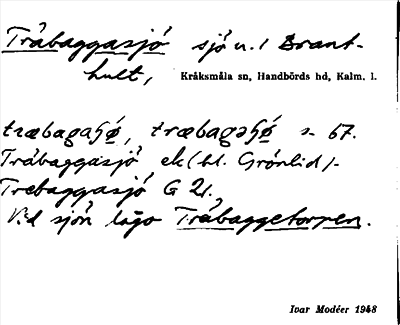 Tråbaggasjö sjö u. l Brant-
hult, Kråksmåla sn, Handbörds hd, Kalm. l.
træbagaɧø̀, træbagəɧø̀ s. 67.
Tråbaggasjö ek (bl. Grönlid).
Trebaggasjö G 21.
Vid sjön lågo Tråbaggetorpen.
Ivar Modéer 1948